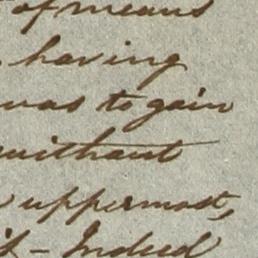 of means
having
was to gain
without
uppermost,
if - Indeed